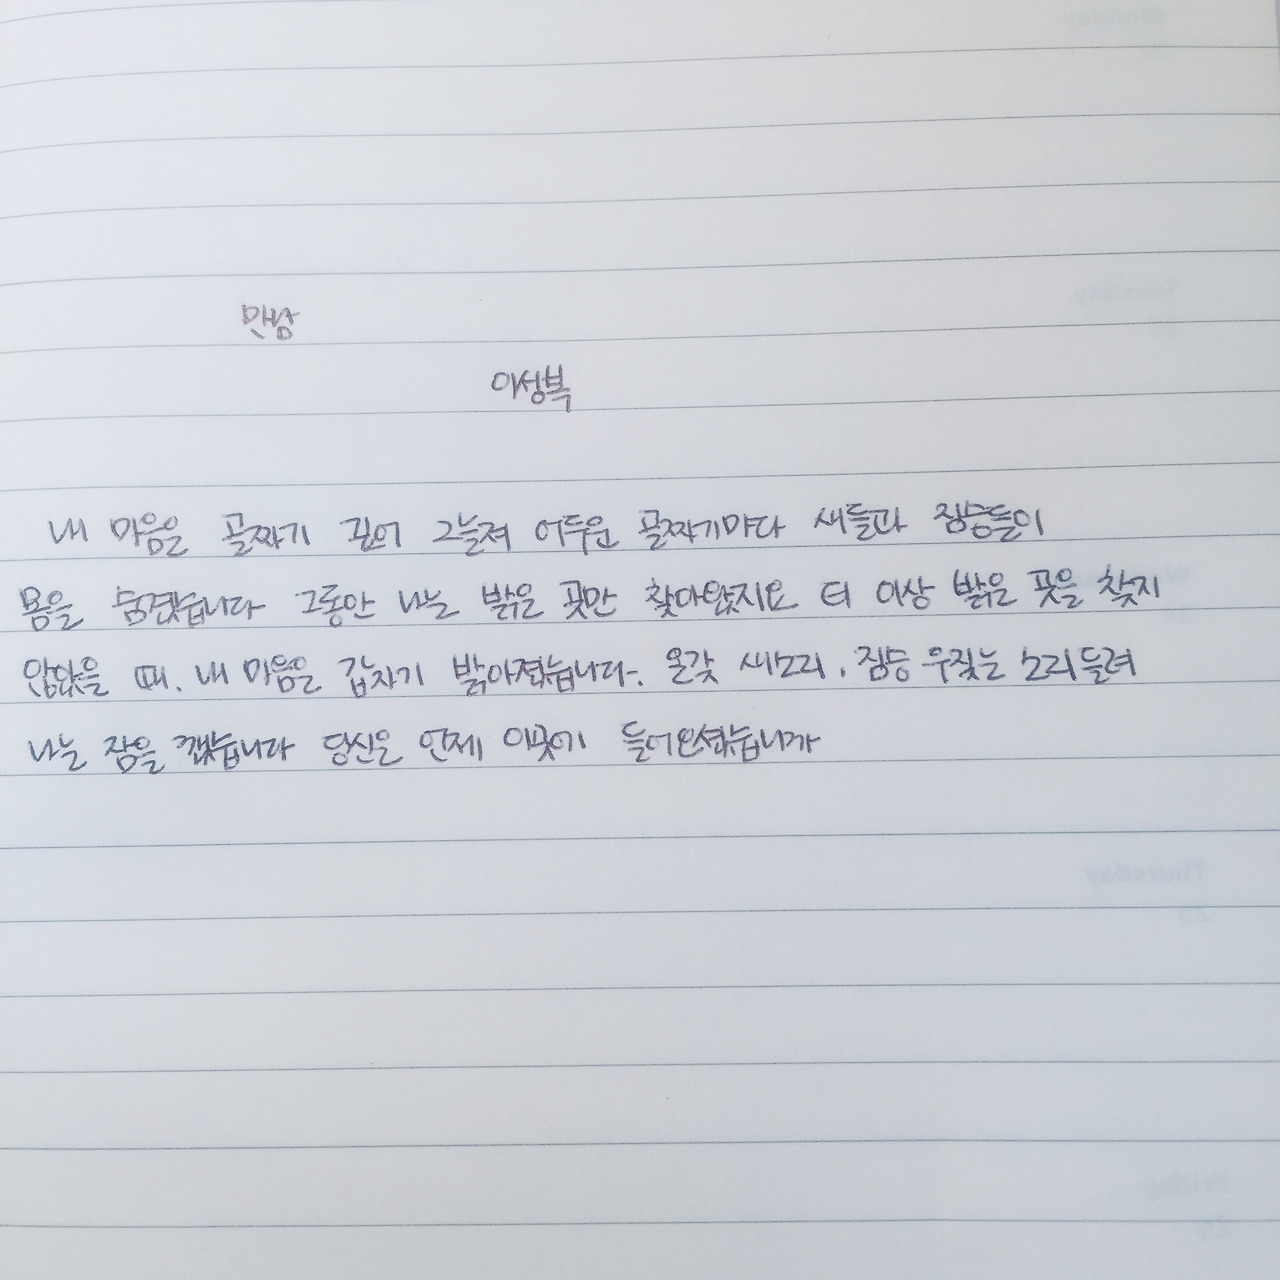 만남
이성복
내 마음은 골짜기 깊어 그늘져 어두운 골짜기마다 새들과 짐승들이
몸을 숨겼습니다 그동안 나는 밝은 곳만 찾아왔지요 더 이상 밝은 곳을 찾지
않았을 때, 내 마음은 갑자기 밝아졌습니다. 온갖 새소리, 짐승 우짖는 소리 들려
나는 잠을 깼습니다 당신은 언제 이곳에 들어오셨습니까
Tuesday
Thursday
25
Friday